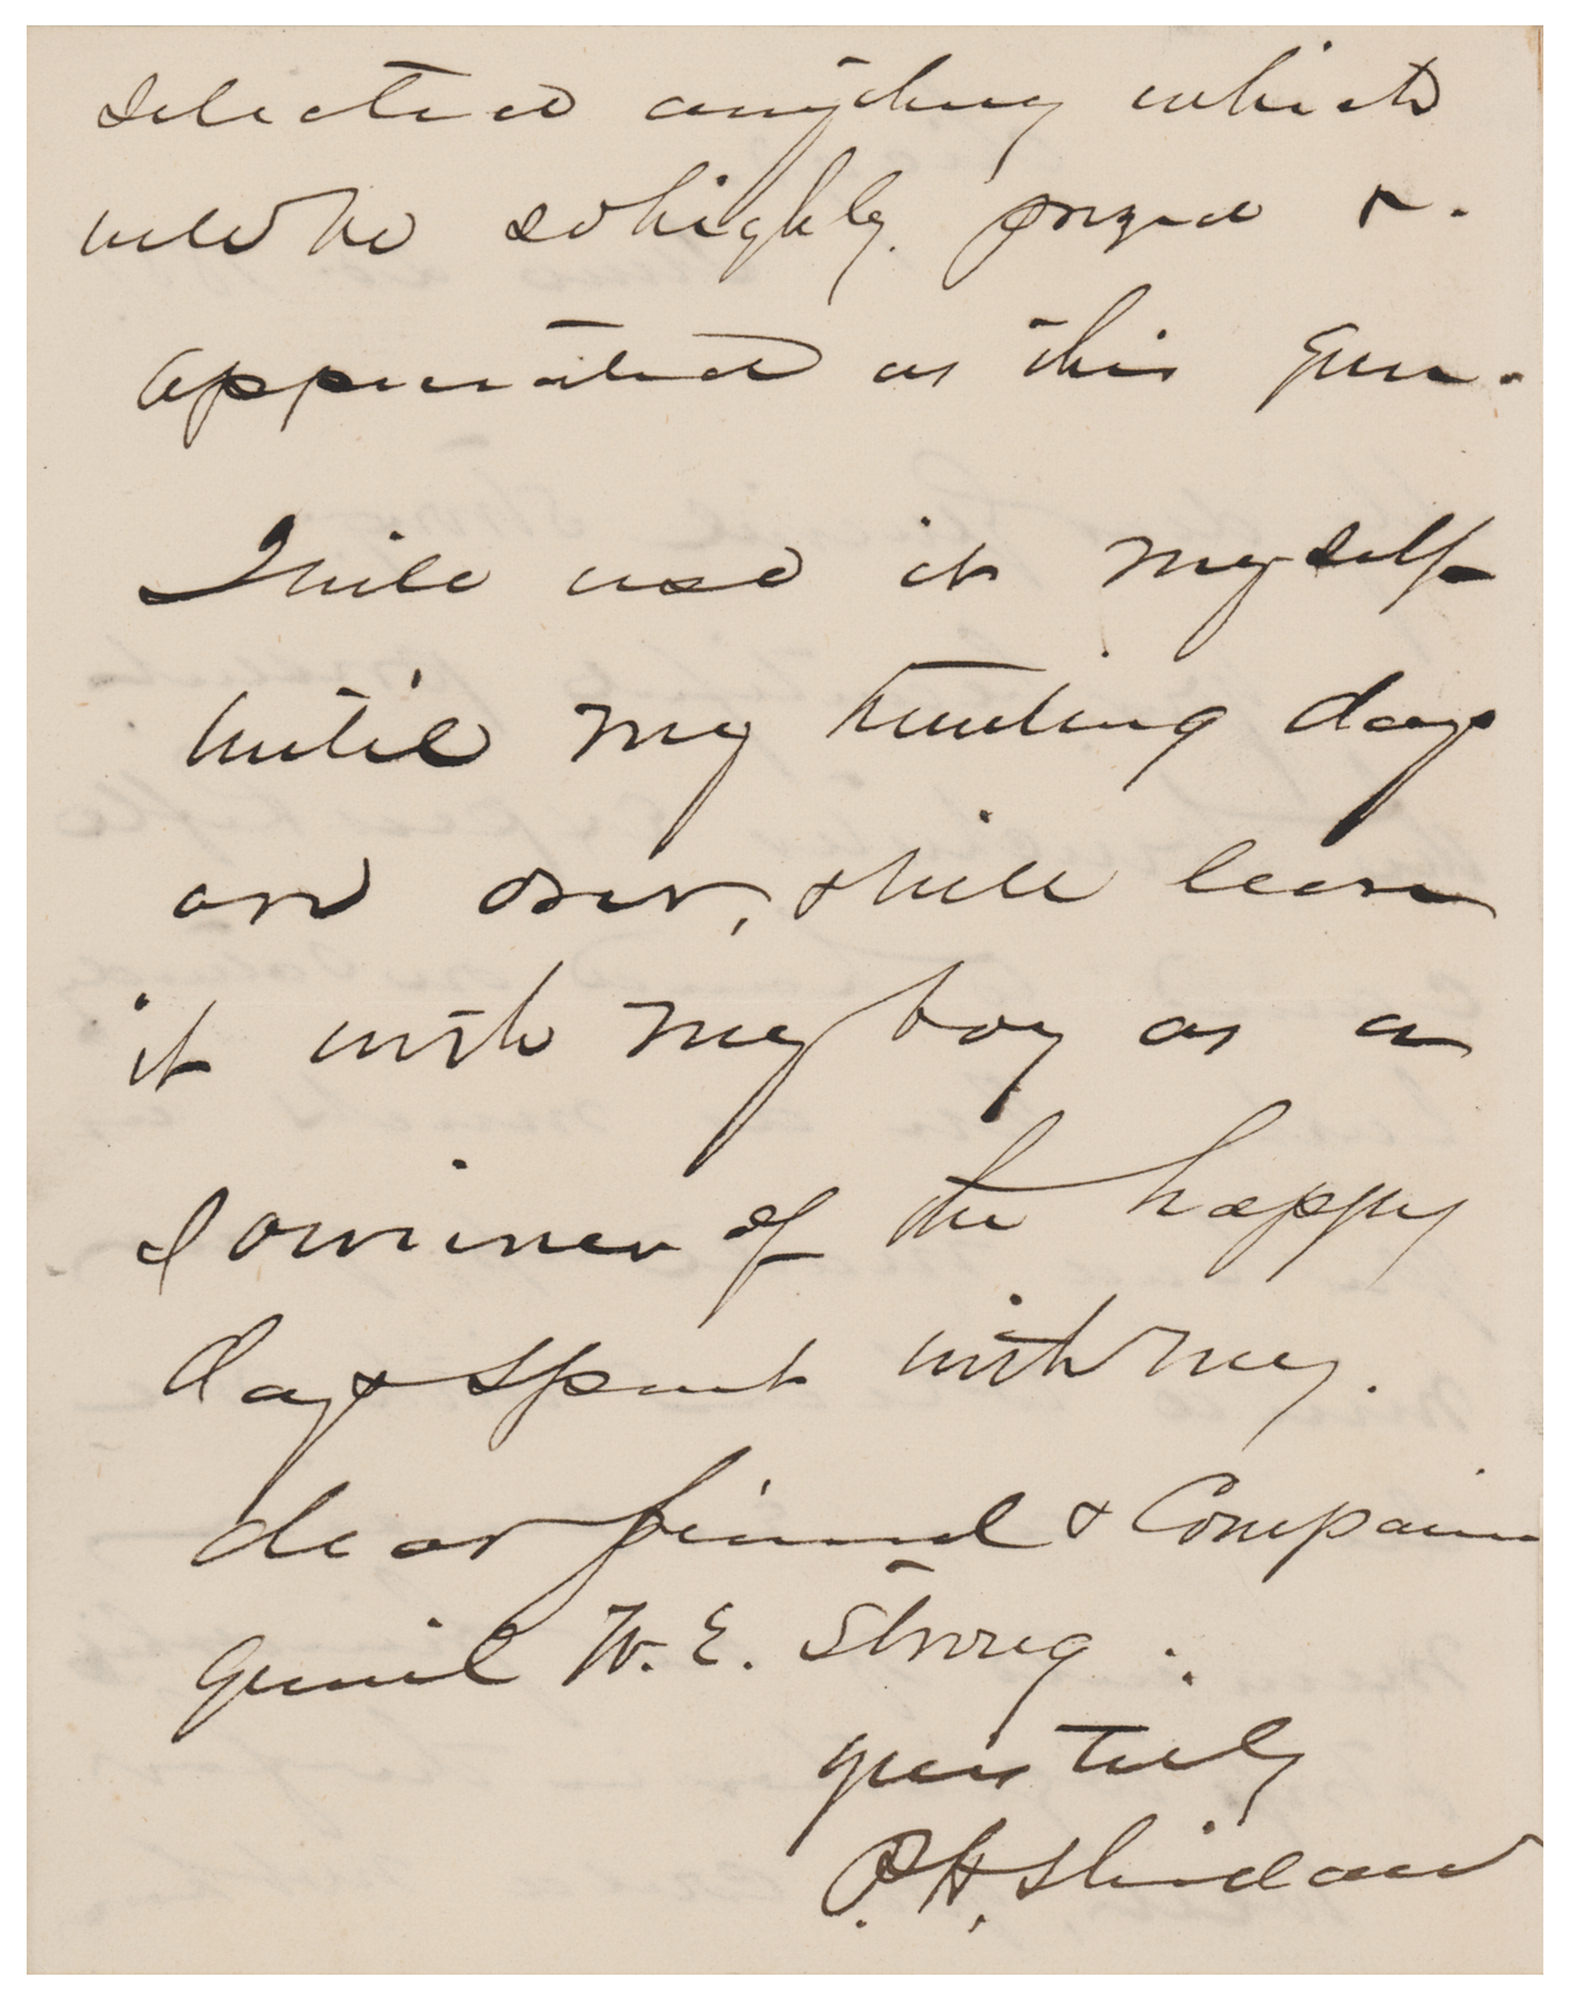 selected anything which
will be so highly prized &
appreciated as this gun.
I will use it myself
until my hunting days
are over, & will leave
it with my boy as a
souvenir of the happy
days spent with my
dear friend & Companion
Genrl W. E. Strong.
yours truly
P. H. Sheridan